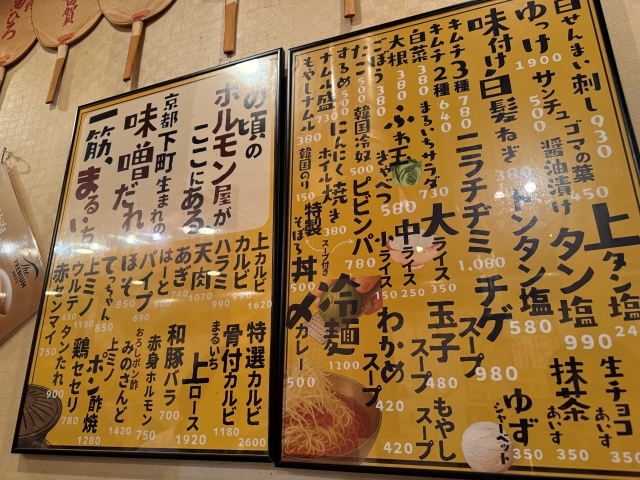 あの頃の
ホルモン屋が
ここにある
京都下町生まれの
味噌だれ
一筋、まるいち
上カルビ 1620
カルビ 990
ハラミ 990
天肉 1070
あぎ 740
はーと 740
パイプ 690
ほそ 850
てっちゃん 850
上ミノ 1180
ウルテ 650
赤センマイ 750
特選カルビ 2600
まるいち
骨付カルビ 1180
上ロース 1920
和豚バラ 700
赤身ホルモン 750
おろしポン酢
みのさんど 1420
上ミノ
ポン酢焼 1280
鶏セセリ 780
タンたれ 900
白せんまい刺し 930
ゆっけ 1900
サンチュ 500
ゴマの葉
醤油漬け 450
味付け白髪ねぎ 380
キムチ3種 780
キムチ2種 640
白菜 380
大根 380
ごぼう 380
たこ 500
するめ 500
ナムル盛 730
もやしナムル 380
上タン塩
タン塩 990
トントン塩 580
ニラチヂミ 1,080
チゲスープ 980
まるいちサラダ 730
ふわ玉
きゃべつ 580
韓国冷奴 500
にんにく
ホイル焼き 380
韓国のり 150
大ライス 350
中ライス 250
小ライス 150
ビビンバ 780
スープ付き
特製
そぼろ丼 500
〆カレー 500
冷麺 1100
わかめスープ 420
玉子スープ 480
もやしスープ 420
生チョコあいす 350
抹茶あいす 350
ゆずシャーベット 350